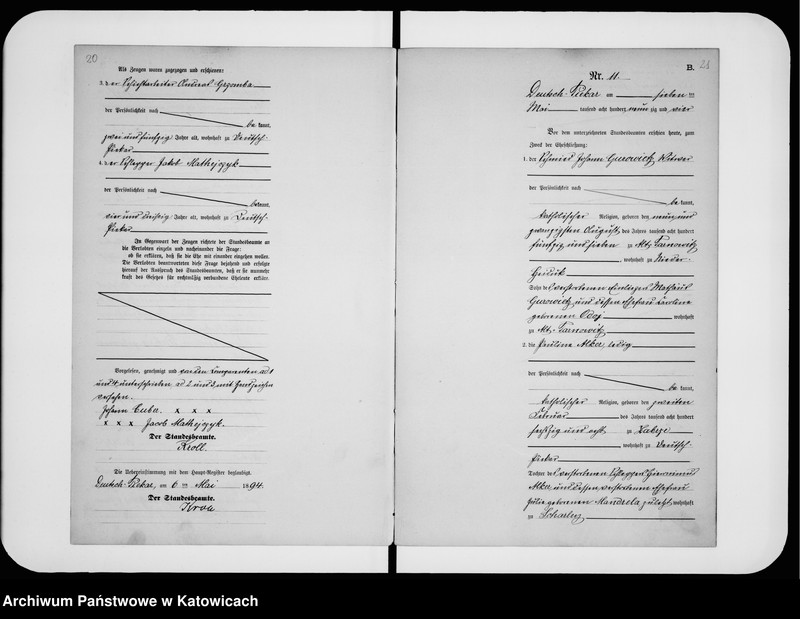 20
Als Zeugen waren zugezogen und erschienen:
3. der Schichtarbeiter
der Persönlichkeit nach
be kannt,
zwei und fünfzig Jahre alt, wohnhaft zu Deutsch-
Piekar
4. der Schlepper Jakob Mathejczyk
der Persönlichkeit nach
bekannt,
vier und dreißig Jahre alt, wohnhaft zu Deutsch-
Piekar
In Gegenwart der Zeugen richtete der Standesbeamte an
die Verlobten einzeln und nacheinander die Frage:
ob sie erklären, daß sie die Ehe mit einander eingehen wollen.
Die Verlobten beantworteten diese Frage bejahend und erfolgte
hierauf der Ausspruch des Standesbeamten, daß er sie nunmehr
kraft des Gesetzes für rechtmäßig verbundene Eheleute erkläre.
Vorgelesen, genehmigt und von den Komparenten ad 1
und 4 unterschrieben ad 2 und 3 mit Handzeichen
versehen.
Johann Cuba. x x x
x x x Jacob Mathejczyk.
Der Standesbeamte.
Kroll.
Die Uebereinstimmung mit dem Haupt-Register beglaubigt.
Deutsch-Piekar, am 6 ten Mai 1894.
Der Standesbeamte.
Kroll
B.
Nr. 11.
Deutsch-Piekar am sieben ten
Mai tausend acht hundert neun zig und vier
Vor dem unterzeichneten Standesbeamten erschienen heute, zum
Zweck der Eheschließung:
1. der Schmied Johann Gurowietz, Witwer
der Persönlichkeit nach
be kannt,
katholischer Religion, geboren den neun und
zwanzigsten August des Jahres tausend acht hundert
fünfzig und sieben zu Alt-Tarnowitz
, wohnhaft zu Nieder-
Sohn des verstorbenen Einliegers
Gurowietz und dessen Ehefrau
geborenen wohnhaft
zu Alt-Tarnowitz
2. die Pauline Alker, ledig
der Persönlichkeit nach
be kannt,
katholischer Religion, geboren den zweiten
Februar des Jahres tausend acht hundert
sechszig und acht zu Zabrze
, wohnhaft zu Deutsch-
Piekar
Tochter des verstorbenen Schleppers
Alker und dessen verstorbenen Ehefrau
geborenen Mandrela zuletzt wohnhaft
zu Scharley
Archiwum Państwowe w Katowicach